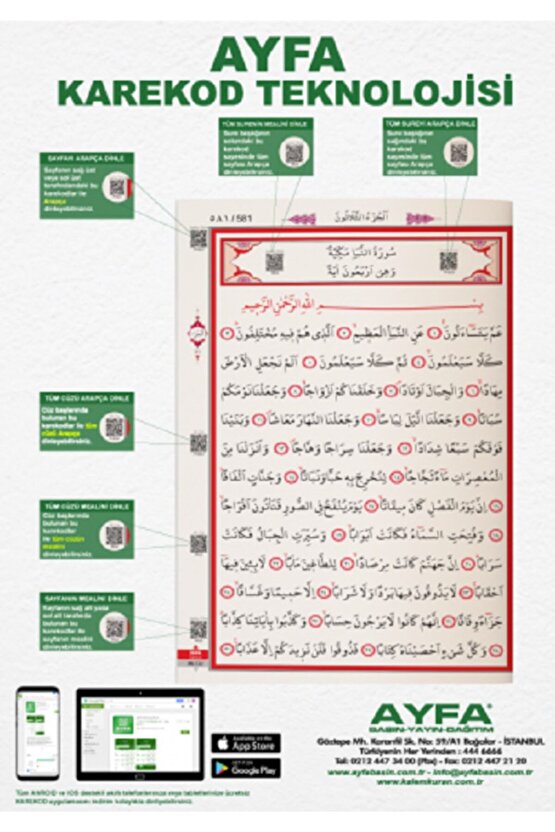 AYFA
KAREKOD TEKNOLOJİSİ
TÜM SURENİN MEALİNİ DİNLE
Sure başlığının
solundaki bu
karekod
sayesinde tüm
sayfayı Arapça
dinleyebilirsiniz.
TÜM SUREYİ ARAPÇA DİNLE
Sure başlığının
sağındaki bu
karekod
sayesinde tüm
sayfayı Arapça
dinleyebilirsiniz.
SAYFAYI ARAPÇA DİNLE
Sayfanın sağ üst
veya sol üst
tarafındaki bu
karekodlar ile
Arapça
dinleyebilirsiniz.
٥٨١ / 581
اَلْجُزْءُ الثَّلَاثُونَ
سُورَةُ النَّبَإِ مَكِّيَّةٌ
وَهِيَ اَرْبَعُونَ اٰيَةً
بِسْمِ اللّٰهِ الرَّحْمٰنِ الرَّحِيمِ
عَمَّ يَتَسَاءَلُونَ ۝١ عَنِ النَّبَاِ الْعَظِيمِ ۝٢ اَلَّذِى هُمْ فِيهِ مُخْتَلِفُونَ ۝٣
كَلَّا سَيَعْلَمُونَ ۝٤ ثُمَّ كَلَّا سَيَعْلَمُونَ ۝٥ اَلَمْ نَجْعَلِ الْاَرْضَ
مِهَادًا ۝٦ وَالْجِبَالَ اَوْتَادًا ۝٧ وَخَلَقْنَاكُمْ اَزْوَاجًا ۝٨ وَجَعَلْنَا نَوْمَكُمْ
سُبَاتًا ۝٩ وَجَعَلْنَا الَّيْلَ لِبَاسًا ۝١٠ وَجَعَلْنَا النَّهَارَ مَعَاشًا ۝١١ وَبَنَيْنَا
فَوْقَكُمْ سَبْعًا شِدَادًا ۝١٢ وَجَعَلْنَا سِرَاجًا وَهَّاجًا ۝١٣ وَاَنْزَلْنَا مِنَ
الْمُعْصِرَاتِ مَاءً ثَجَّاجًا ۝١٤ لِنُخْرِجَ بِهِ حَبًّا وَنَبَاتًا ۝١٥ وَجَنَّاتٍ اَلْفَافًا
۝١٦ اِنَّ يَوْمَ الْفَصْلِ كَانَ مِيقَاتًا ۝١٧ يَوْمَ يُنْفَخُ فِى الصُّورِ فَتَأْتُونَ اَفْوَاجًا
۝١٨ وَفُتِحَتِ السَّمَاءُ فَكَانَتْ اَبْوَابًا ۝١٩ وَسُيِّرَتِ الْجِبَالُ فَكَانَتْ
سَرَابًا ۝٢٠ اِنَّ جَهَنَّمَ كَانَتْ مِرْصَادًا ۝٢١ لِلطَّاغِينَ مَاٰبًا ۝٢٢ لَابِثِينَ فِيهَا
اَحْقَابًا ۝٢٣ لَا يَذُوقُونَ فِيهَا بَرْدًا وَلَا شَرَابًا ۝٢٤ اِلَّا حَمِيمًا وَغَسَّاقًا ۝٢٥
جَزَاءً وِفَاقًا ۝٢٦ اِنَّهُمْ كَانُوا لَا يَرْجُونَ حِسَابًا ۝٢٧ وَكَذَّبُوا بِاٰيَاتِنَا كِذَّابًا
۝٢٨ وَكُلَّ شَيْءٍ اَحْصَيْنَاهُ كِتَابًا ۝٢٩ فَذُوقُوا فَلَنْ نَزِيدَكُمْ اِلَّا عَذَابًا ۝٣٠
TÜM CÜZÜ ARAPÇA DİNLE
Cüz başlarında
bulunan bu
karekodlar ile tüm
cüzü Arapça
dinleyebilirsiniz.
TÜM CÜZÜ MEALİNİ DİNLE
Cüz başlarında
bulunan bu
karekodlar
ile tüm cüzün
mealini
dinleyebilirsiniz.
SAYFANIN MEALİNİ DİNLE
Sayfanın sağ alt yada
sol alt tarafında
bulunan bu
karekodlar ile
sayfanın mealini
dinleyebilirsiniz.
Available on the
App Store
Google Play
AYFA
BASIN-YAYIN-DAĞITIM
Göztepe Mh. Karanfil Sk. No: 59/A1 Bağcılar - İSTANBUL
Türkiyenin Her Yerinden : 444 6666
Tel: 0212 447 34 00 (Pbx) - Fax: 0212 447 21 20
www.ayfabasin.com.tr - info@ayfabasin.com.tr
www.kalemkuran.com.tr
Tüm ANROİD ve IOS destekli akıllı telefonlarınıza veya tabletlerinize ücretsiz
KAREKOD uygulamasını indirin kolaylıkla dinleyebilirsiniz.